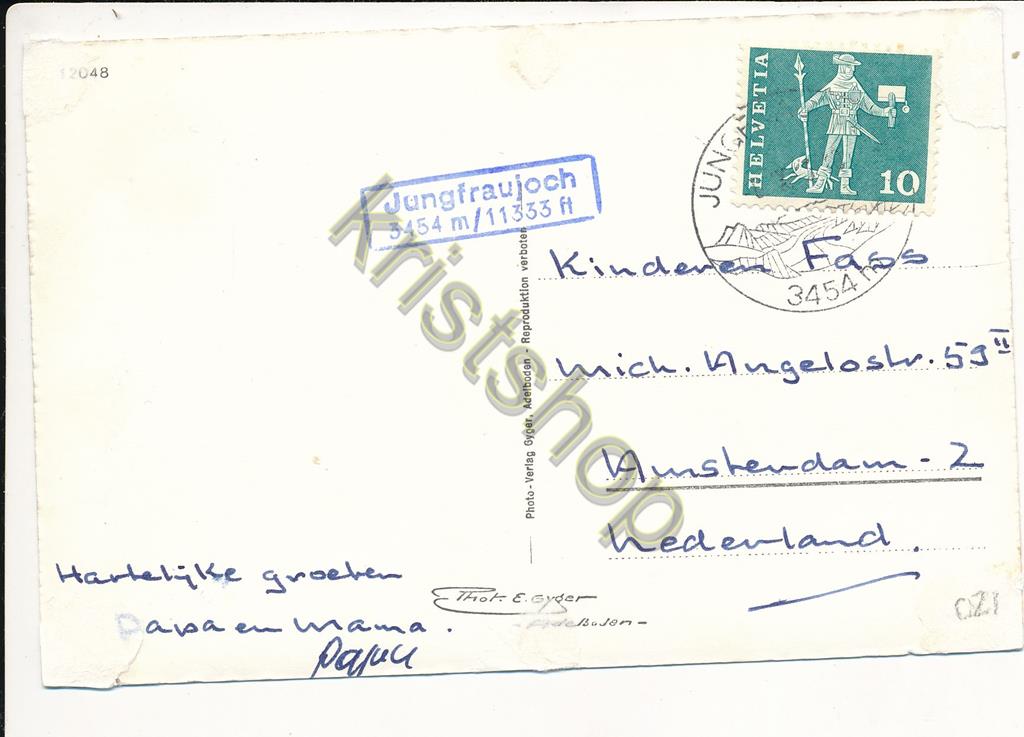 12048
HELVETIA
10
JUNG
3454 m
Jungfraujoch
3454 m/11333 ft
Kinderen Fass
Mich. Angelostr. 59 II
Amsterdam - Z
Nederland.
Photo-Verlag Gyger, Adelboden - Reproduktion verboten
Hartelijke groeten
Papa en Mama.
Phot. E. Gyger
- Adelboden -
Kristshop